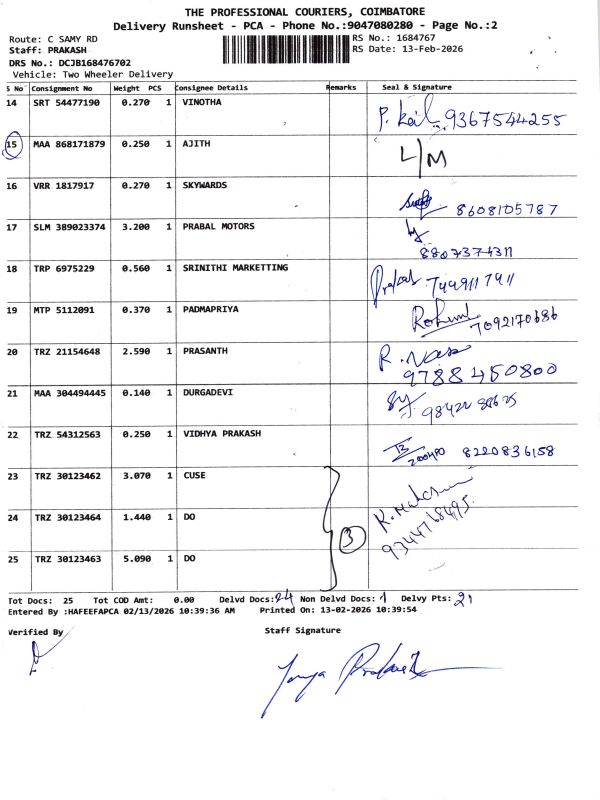 THE PROFESSIONAL COURIERS, COIMBATORE
Delivery Runsheet - PCA - Phone No.:9047080280 - Page No.:2
Route: C SAMY RD
RS No.: 1684767
Staff: PRAKASH
RS Date: 13-Feb-2026
DRS No.: DCJB168476702
Vehicle: Two Wheeler Delivery
S No Consignment No Weight PCS Consignee Details Remarks Seal & Signature
14 SRT 54477190 0.270 1 VINOTHA 9367544255
15 MAA 868171879 0.250 1 AJITH L/M
16 VRR 1817917 0.270 1 SKYWARDS 8608105787
17 SLM 389023374 3.200 1 PRABAL MOTORS 8807374311
18 TRP 6975229 0.560 1 SRINITHI MARKETTING 7449117911
19 MTP 5112091 0.370 1 PADMAPRIYA 7092170686
20 TRZ 21154648 2.590 1 PRASANTH 9788450800
21 MAA 304494445 0.140 1 DURGADEVI
22 TRZ 54312563 0.250 1 VIDHYA PRAKASH 8220836158
23 TRZ 30123462 3.070 1 CUSE
24 TRZ 30123464 1.440 1 DO 3
25 TRZ 30123463 5.090 1 DO
Tot Docs: 25 Tot COD Amt: 0.00 Delvd Docs: 24 Non Delvd Docs: 1 Delvy Pts: 21
Entered By :HAFEEFAPCA 02/13/2026 10:39:36 AM Printed On: 13-02-2026 10:39:54
Verified By
Staff Signature